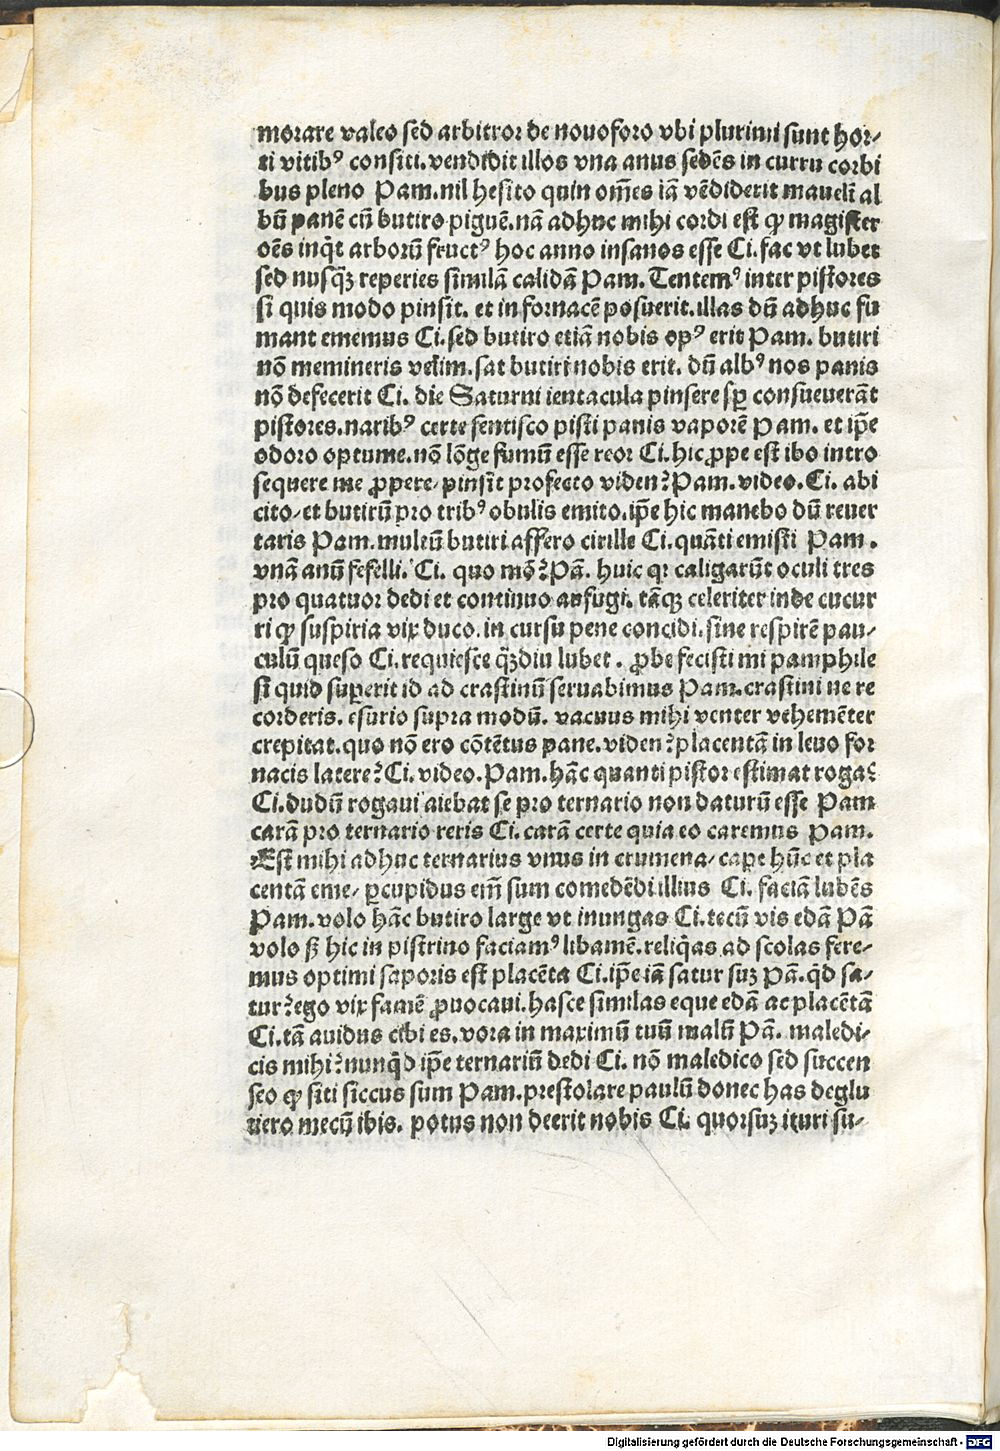 morare valeo sed arbitror de nouoforo vbi plurimi sunt hor-
ti vitibꝰ consiti. vendidit illos vna anus sedẽs in curru corbi
bus pleno Pam. nil hesito quin om̃es iã vẽdiderit maueli᷒ al
bũ panẽ cũ butiro piguẽ. nã adhuc mihi cordi est ꝙ magister
oẽs inq̃t arborũ fructꝰ hoc anno insanos esse Ci. fac vt lubet
sed nusq̃ꝫ reperies similã calidã Pam. Tentemꝰ inter pistores
si quis modo pinsit. et in fornacẽ posuerit. illas dũ adhuc fu
mant ememus Ci. sed butiro etiã nobis opꝰ erit Pam. butiri
nõ memineris velim. sat butiri nobis erit. dũ albꝰ nos panis
nõ defecerit Ci. die Saturni ientacula pinsere sꝑ consueuerãt
pistores. naribꝰ certe sentisco pisti panis vaporẽ Pam. et ip̃e
odoro optume. nõ lõge fumũ esse reor Ci. hic ꝓpe est ibo intro
sequere me ꝓpere, pinsit profecto viden? Pam. video. Ci. abi
cito, et butirũ pro tribꝰ obulis emito. ip̃e hic manebo dũ reuer
taris Pam. multũ butiri affero cirille Ci. quãti emisti Pam.
vnã anũ fefelli. Ci. quo mõ? Pã. huic qꝛ caligarũt oculi tres
pro quatuor dedi et continuo aufugi. tãqꝫ celeriter inde cucur
ri ꝙ suspiria vix duco. in cursu pene concidi. sine respirẽ pau-
culũ queso Ci. requiesce q̃ꝫdiu lubet. ꝓbe fecisti mi pamphile
si quid suꝑerit id ad crastinũ seruabimus Pam. crastini ne re
corderis. esurio supra modũ. vacuus mihi venter vehemẽter
crepitat. quo nõ ero cõtẽtus pane. viden? placentã in leuo for
nacis latere? Ci. video. Pam. hãc quanti pistor estimat roga?
Ci. dudũ rogaui aiebat se pro ternario non daturũ esse Pam
carã pro ternario reris Ci. carã certe quia eo caremus Pam.
Est mihi adhuc ternarius vnus in crumena, cape hũc et pla
centã eme, ꝑcupidus em̃ sum comedẽdi illius Ci. faciã lubẽs
Pam. volo hãc butiro large vt inungas Ci. tecũ vis edã Pã
volo sꝫ hic in pistrino faciamꝰ libamẽ. reliq̃as ad scolas fere-
mus optimi saporis est placẽta Ci. ip̃e iã satur suꝫ Pã. q̃d sa-
tur? ego vix famẽ ꝓuocaui. hasce similas eque edã ac placẽtã
Ci. tã auidus cibi es. vora in maximũ tuũ malũ Pã. maledi-
cis mihi? nunq̃d ip̃e ternariũ dedi Ci. nõ maledico sed succen
seo ꝙ siti siccus sum Pam. prestolare paulũ donec has deglu
tiero mecũ ibis. potus non deerit nobis Ci. quorsuꝫ ituri su-
Digitalisierung gefördert durch die Deutsche Forschungsgemeinschaft - DFG